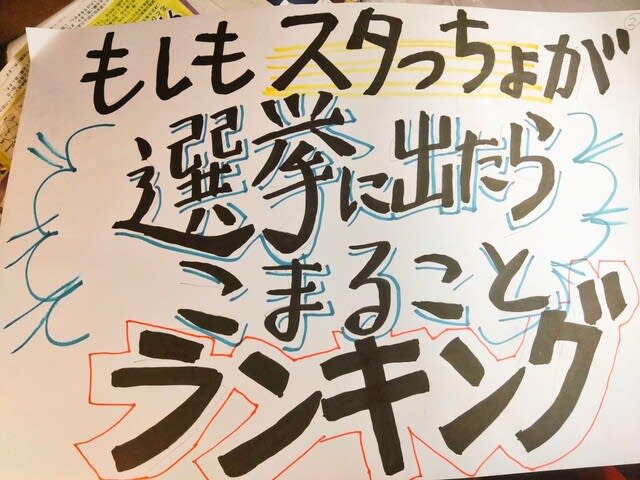 もしもスタっちょが
選挙に出たら
こまること
ランキング